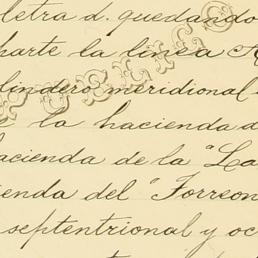 letra d. quedando
parte la linea
lindero meridional
la hacienda d
acienda de la "La
ienda del "Torreon
septentrional y oc